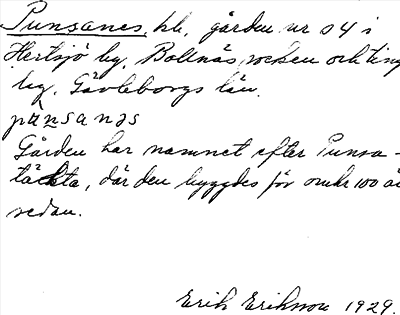 Punsanes, hb, gården nr 04 i
Hertsjö by, Bollnäs socken och ting
lag, Gävleborgs län.
punsanəs
Gården har namnet efter Punsa-
täckta, där den byggdes för omkr 100 år
sedan.
Erik Eriksson 1929.